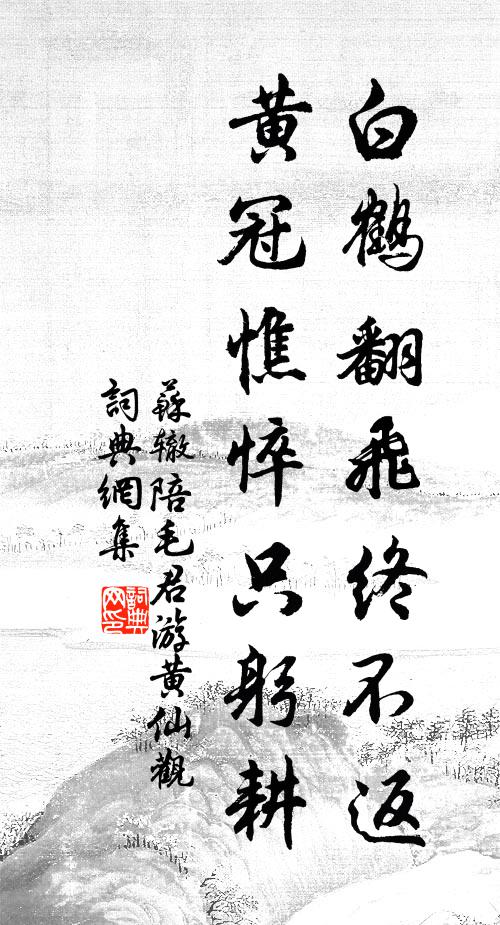 白鶴翻飛終不返
黃冠憔悴只躬耕
蘇轍陪毛君游黃仙觀
詞典網集
詞典网印